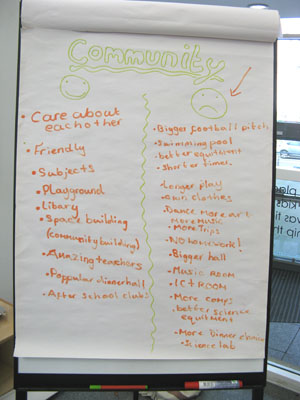 Community
• Care about
each other
• Friendly
• Subjects
• Playground
• libary
• Space building
(community building)
• Amazing teachers
• Poppular dinner hall
• After school clubs
• Bigger football pitch
• Swimming pool
• better equitment
• Shorter times.
• Longer play
• own clothes
• Dance more art
• More Music
• More Trips
• NO homework!
• Bigger hall
• Music ROOM
• ICT ROOM
• More comps
• better science
equitment
• More Dinner choices
• Science lab